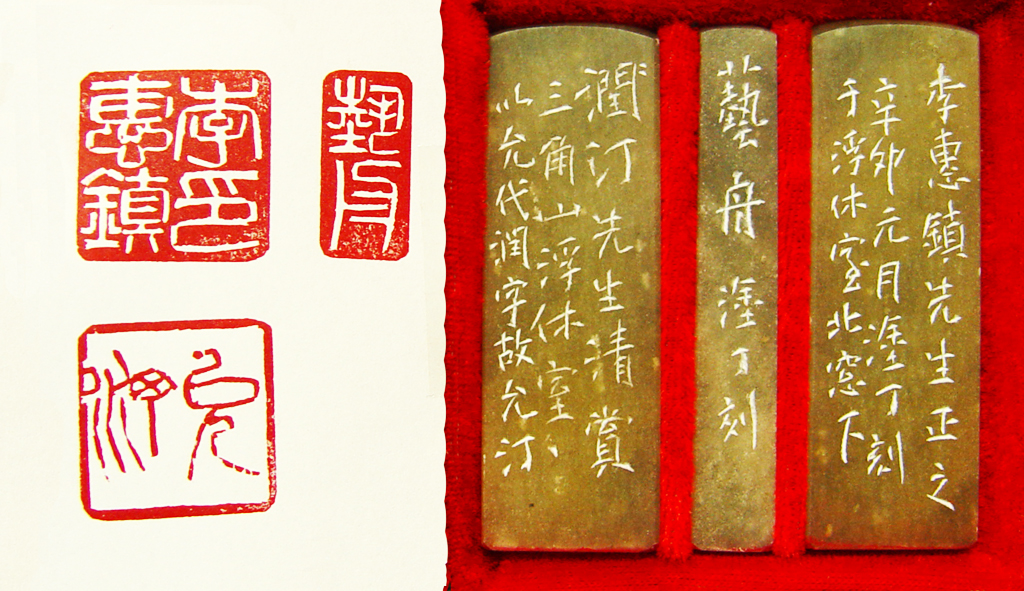 李印
惠鎮
藝舟
允汀
李惠鎮先生正之
辛卯元月塗丁刻
于浮休室北窓下
藝舟塗丁刻
潤汀先生清賞
三角山浮休室
以允代潤字故允汀